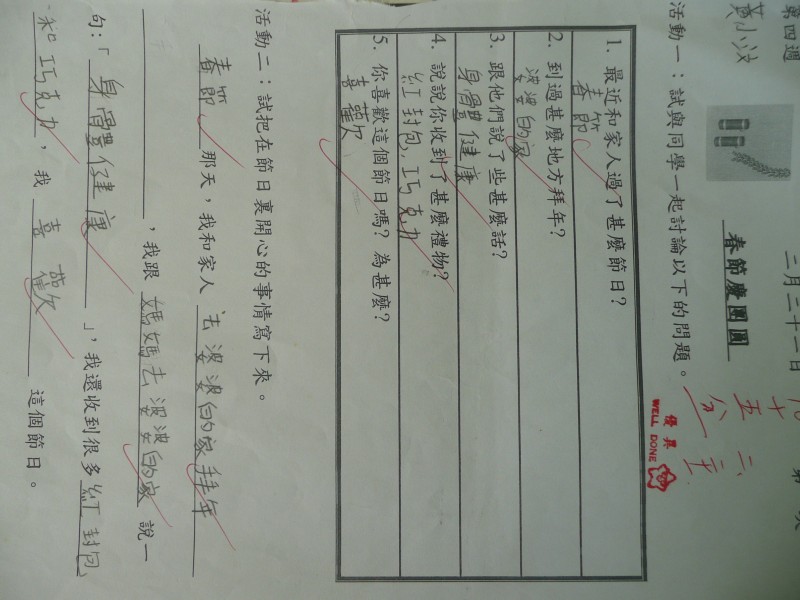 第四週
黃小波
春節慶團圓
優異
WELL DONE
活動一：試與同學一起討論以下的問題。
1. 最近和家人過了甚麼節日？
春節
2. 到過甚麼地方拜年？
婆婆的家
3. 跟他們說了些甚麼話？
身體健康
4. 說說你收到了甚麼禮物？
紅封包，巧克力
5. 你喜歡這個節日嗎？為甚麼？
喜歡
活動二：試把在節日裏開心的事情寫下來。
春節 那天，我和家人 去婆婆的家拜年
，我跟 媽媽去婆婆的家 說一
句：「身體健康」，我還收到很多紅封包
和巧克力，我 喜歡 這個節日。